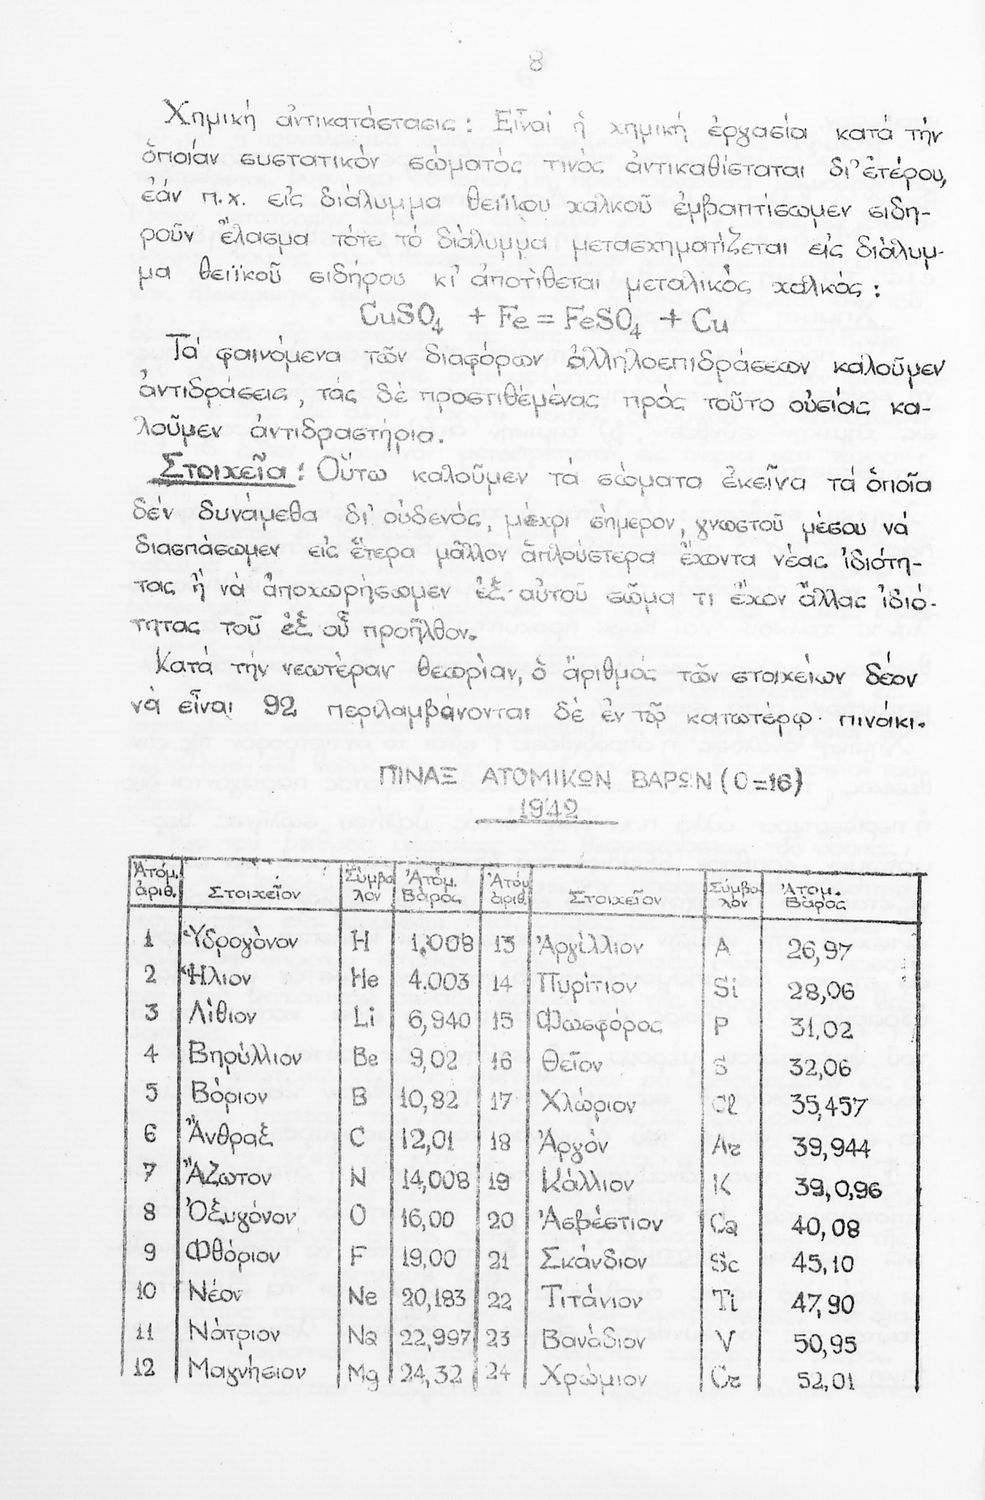 8
Χημική ἀντικατάστασις: Εἶναι ἡ χημική ἐργασία κατά τήν
ὁποίαν συστατικόν σώματός τινος ἀντικαθίσταται δι' ἑτέρου,
ἐάν π.χ. εἰς διάλυμμα θειϊκου χαλκοῦ ἐμβαπτίσωμεν σιδη-
ροῦν ἔλασμα τότε τό διάλυμμα μετασχηματίζεται εἰς διάλυμ-
μα θειϊκοῦ σιδήρου κι' ἀποτίθεται μεταλικός χαλκός:
CuSO4 + Fe = FeSO4 + Cu
Τά φαινόμενα τῶν διαφόρων ἀλληλοεπιδράσεων καλοῦμεν
ἀντιδράσεις, τάς δέ προστιθέμένας πρός τοῦτο οὐσίας κα-
λοῦμεν ἀντιδραστήρια.
Στοιχεῖα: Οὕτω καλοῦμεν τά σώματα ἐκεῖνα τά ὁποῖα
δέν δυνάμεθα δι' οὐδενός, μέχρι σήμερον, γνωστοῦ μέσου νά
διασπάσωμεν εἰς ἕτερα μᾶλλον ἁπλούστερα ἔχοντα νέας ἰδιότη-
τας ἤ νά ἀποχωρήσωμεν ἐξ αὐτοῦ σῶμα τι ἔχον ἄλλας ἰδιό-
τητας τοῦ ἐξ οὗ προῆλθον.
Κατά τήν νεωτέραν θεωρίαν, ὁ ἀριθμός τῶν στοιχείων δέον
νά εἶναι 92 περιλαμβάνονται δέ ἐν τῷ κατωτέρῳ πινάκι.
ΠΙΝΑΞ ΑΤΟΜΙΚΩΝ ΒΑΡΩΝ (Ο=16)
1942
Ἀτόμ. ἀριθ. Στοιχεῖον Σύμβολον Ἀτόμ. Βάρος Ἀτόμ ἀριθ. Στοιχεῖον Σύμβολον Ἀτομ. Βάρος
1 Ὑδρογόνον H 1.008 13 Ἀργίλλιον A 26,97
2 Ἥλιον He 4.003 14 Πυρίτιον Si 28,06
3 Λίθιον Li 6,940 15 Φωσφόρος P 31,02
4 Βηρύλλιον Be 9,02 16 Θεῖον S 32,06
5 Βόριον B 10,82 17 Χλώριον Cl 35,457
6 Ἄνθραξ C 12,01 18 Ἀργόν Ar 39,944
7 Ἄζωτον N 14,008 19 Κάλλιον K 39,0,96
8 Ὀξυγόνον O 16,00 20 Ἀσβέστιον Ca 40,08
9 Φθόριον F 19,00 21 Σκάνδιον Sc 45,10
10 Νέον Ne 20,183 22 Τιτάνιον Ti 47,90
11 Νάτριον Na 22,997 23 Βανάδιον V 50,95
12 Μαγνήσιον Mg 24,32 24 Χρώμιον Cr 52,01